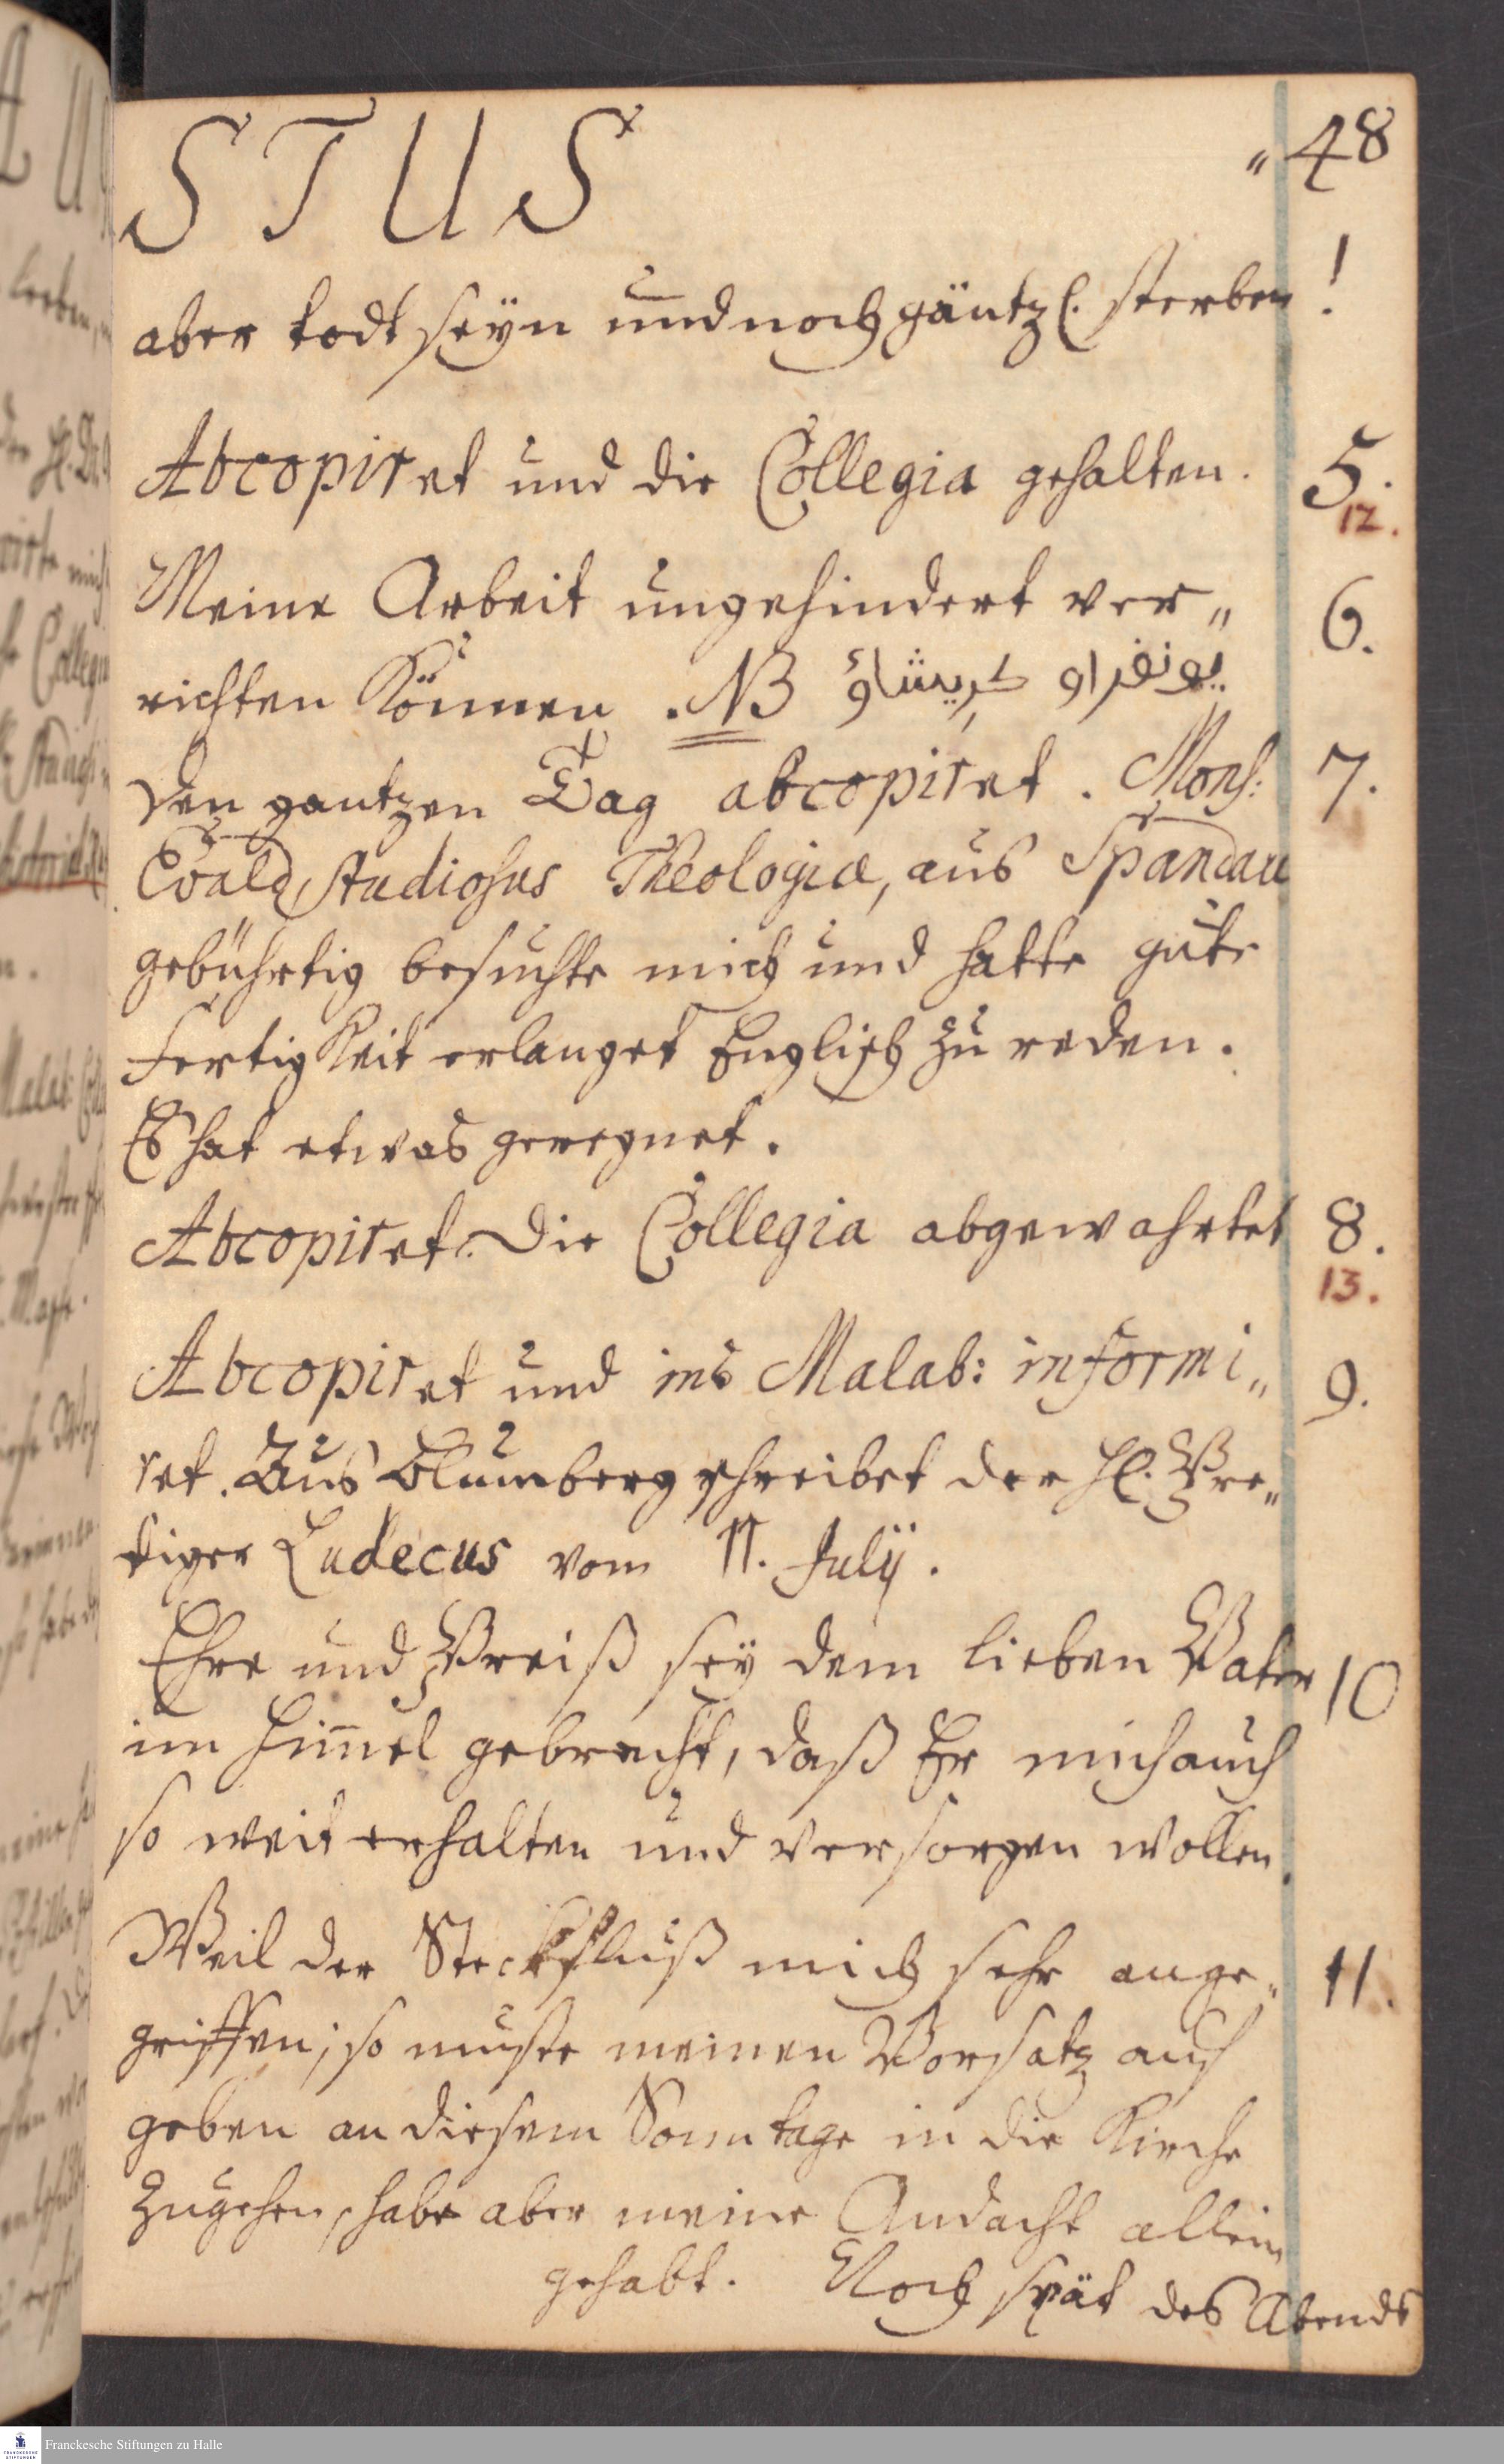 STUS
„ 48
aber todt seÿn und noch gäntzl. sterben !
Abcopiret und die Collegia gehalten. 5.
12.
Meine Arbeit ungehindert ver„ 6.
richten können. NB يونفراو كريشاؤ
Den gantzen Tag abcopiret. Mons: 7.
Evald, Studiosus Theologiæ, aus Spandau
gebührtig besuchte mich und hatte gute
Fertigkeit erlanget Englisch zu reden.
Es hat etwas geregnet.
Abcopiret. Die Collegia abgewahrtet 8.
13.
Abcopiret und ins Malab: informi„ 9.
ret. Aus Blumberg schreibet der Hl. Pre„
diger Ludecus vom 11. Julÿ.
Ehre und Preiß seÿ dem lieben Vater 10
im Him̄el gebracht, daß Er mich auch
so weit erhalten und versorgen wollen.
Weil der Steckfluß mich sehr ange„ 11.
griffen; so muste meinen Vorsatz auf
geben an diesem Sonntage in die Kirche
zugehen, habe aber meine Andacht allein
gehabt. Noch spät des Abends
Franckesche Stiftungen zu Halle